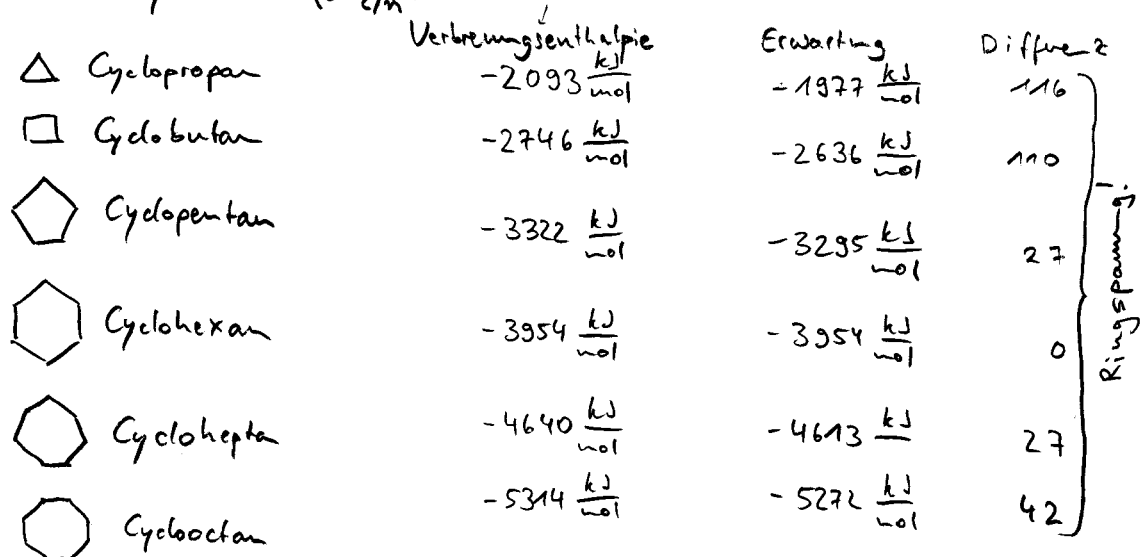 Verbrennungsenthalpie Erwartung Differenz
Cyclopropan -2093 kJ/mol -1977 kJ/mol 116
Cyclobutan -2746 kJ/mol -2636 kJ/mol 110
Cyclopentan -3322 kJ/mol -3295 kJ/mol 27
Cyclohexan -3954 kJ/mol -3954 kJ/mol 0
Cycloheptan -4640 kJ/mol -4613 kJ 27
Cyclooctan -5314 kJ/mol -5272 kJ/mol 42
Ringspannung!